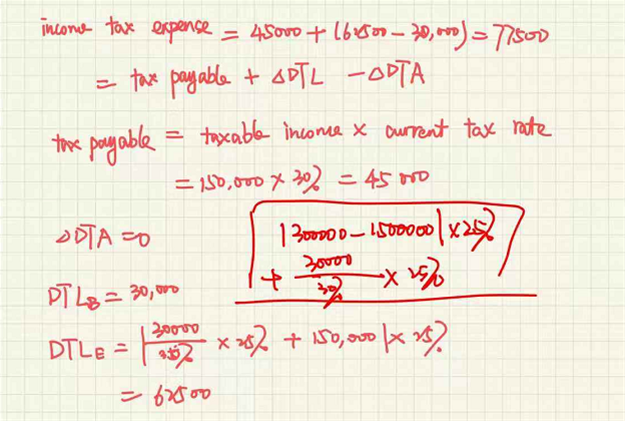 income tax expense = 45000 + (62500 - 30,000) = 77500
= tax payable + ΔDTL - ΔDTA
tax payable = taxable income × current tax rate
= 150,000 × 30% = 45 000
ΔDTA = 0
|300000 - 1500000| × 25%
+ 30000/30% × 25%
DTL_B = 30,000
DTL_E = |30000/ % × 25% + 150,000| × 25%
= 62500